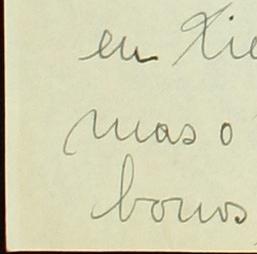 en Xie
mas o
bonos